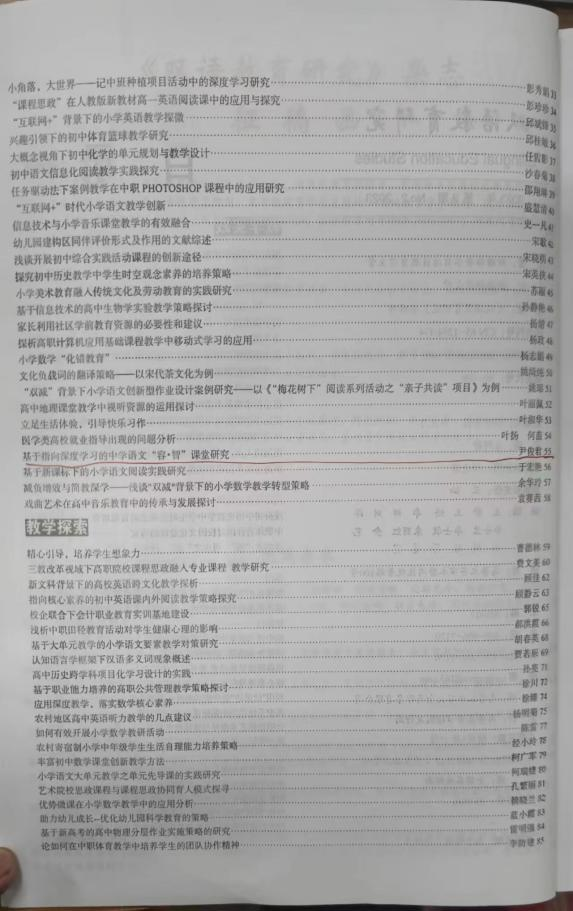 小角落，大世界——记中班种植项目活动中的深度学习研究 彭秀娟 33
“课程思政”在人教版新教材高一英语阅读课中的应用与探究 彭珍珍 34
“互联网+”背景下的小学英语教学探微 邱斌锋 35
兴趣引领下的初中体育篮球教学研究 邱桂敏 36
大概念视角下初中化学的单元规划与教学设计 任霞影 37
初中语文信息化阅读教学实践探究 沙春菊 38
任务驱动法下案例教学在中职PHOTOSHOP课程中的应用研究 邵翔琳 39
“互联网+”时代小学语文教学创新 盛慧清 40
信息技术与小学音乐课堂教学的有效融合 史一凡 41
幼儿园建构区同伴评价形式及作用的文献综述 宋敬 42
浅谈开展初中综合实践活动课程的创新途径 宋晓萌 43
探究初中历史教学中学生时空观念素养的培养策略 宋英侠 44
小学美术教育融入传统文化及劳动教育的实践研究 苏丽 45
基于信息技术的高中生物学实验教学策略探讨 孙静艳 46
家长利用社区学前教育资源的必要性和建议 杨婧 47
探析高职计算机应用基础课程教学中移动式学习的应用 杨政 48
小学数学“化错教育” 杨志娟 49
文化负载词的翻译策略——以宋代茶文化为例 姚绮纯 50
“双减”背景下小学语文创新型作业设计案例研究——以《“梅花树下”阅读系列活动之“亲子共读”项目》为例 姚瑶 51
高中地理课堂教学中视听资源的运用探讨 叶丽佩 52
立足生活体验，引导快乐习作 叶淑华 53
医学类高校就业指导出现的问题分析 叶扬 何蕊 54
基于指向深度学习的中学语文“容·智”课堂研究 尹俊君 55
基于新课标下的小学语文阅读实践研究 于宏艳 56
减负增效与简教深学——浅谈“双减”背景下的小学数学教学转型策略 余华玲 57
戏曲艺术在高中音乐教育中的传承与发展探讨 袁蓉茜 58
教学探索
精心引导，培养学生想象力 曹德林 59
三教改革视域下高职院校课程思政融入专业课程 教学研究 费文美 60
新文科背景下的高校英语跨文化教学探析 顾佳 62
指向核心素养的初中英语课内外阅读教学策略探究 顾静云 63
校企联合下会计职业教育实训基地建设 郭锐 65
浅析中职田径教育活动对学生健康心理的影响 郝洪霞 66
基于大单元教学的小学语文要素教学对策研究 胡春英 68
认知语言学框架下汉语多义词现象概述 贾若辰 69
高中历史跨学科项目化学习设计的实践 孙亮 71
基于职业能力培养的高职公共管理教学策略探讨 徐川 72
应用深度教学，落实数学核心素养 徐娜 74
农村地区高中英语听力教学的几点建议 杨明菊 75
如何有效开展小学数学教研活动 陈雷 77
农村寄宿制小学中年级学生生活自理能力培养策略 经小玲 78
丰富初中数学课堂创新教学方法 柯广军 79
小学语文大单元教学之单元先导课的实践研究 何瑞婕 80
艺术院校思政课程与课程思政协同育人模式探寻 孔繁丽 81
优势微课在小学数学教学中的应用分析 赖晓兰 82
助力幼儿成长--优化幼儿园科学教育的策略 蓝小霞 83
基于新高考的高中物理分层作业实施策略的研究 雷明强 84
论如何在中职体育教学中培养学生的团队协作精神 李防建 85